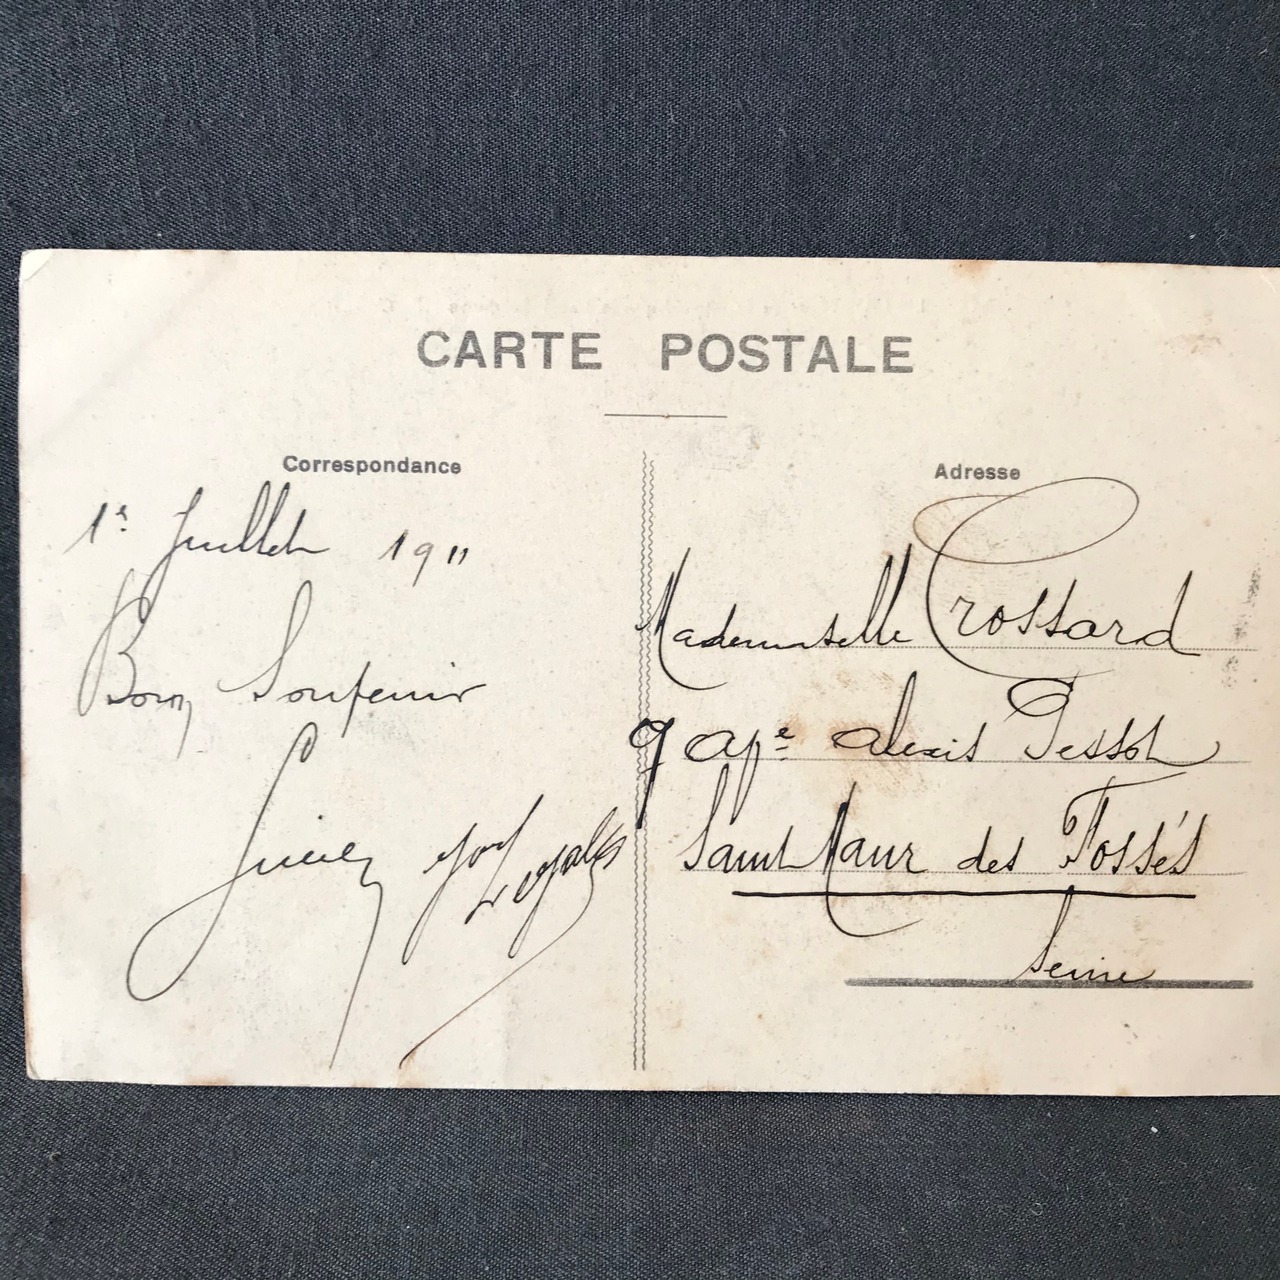 CARTE POSTALE
Correspondance
1er Juillet 1911
Bon Souvenir
Adresse
Mademoiselle Crossard
9 Ape Alexis Pessot
Saint Maur des Fossés
Seine